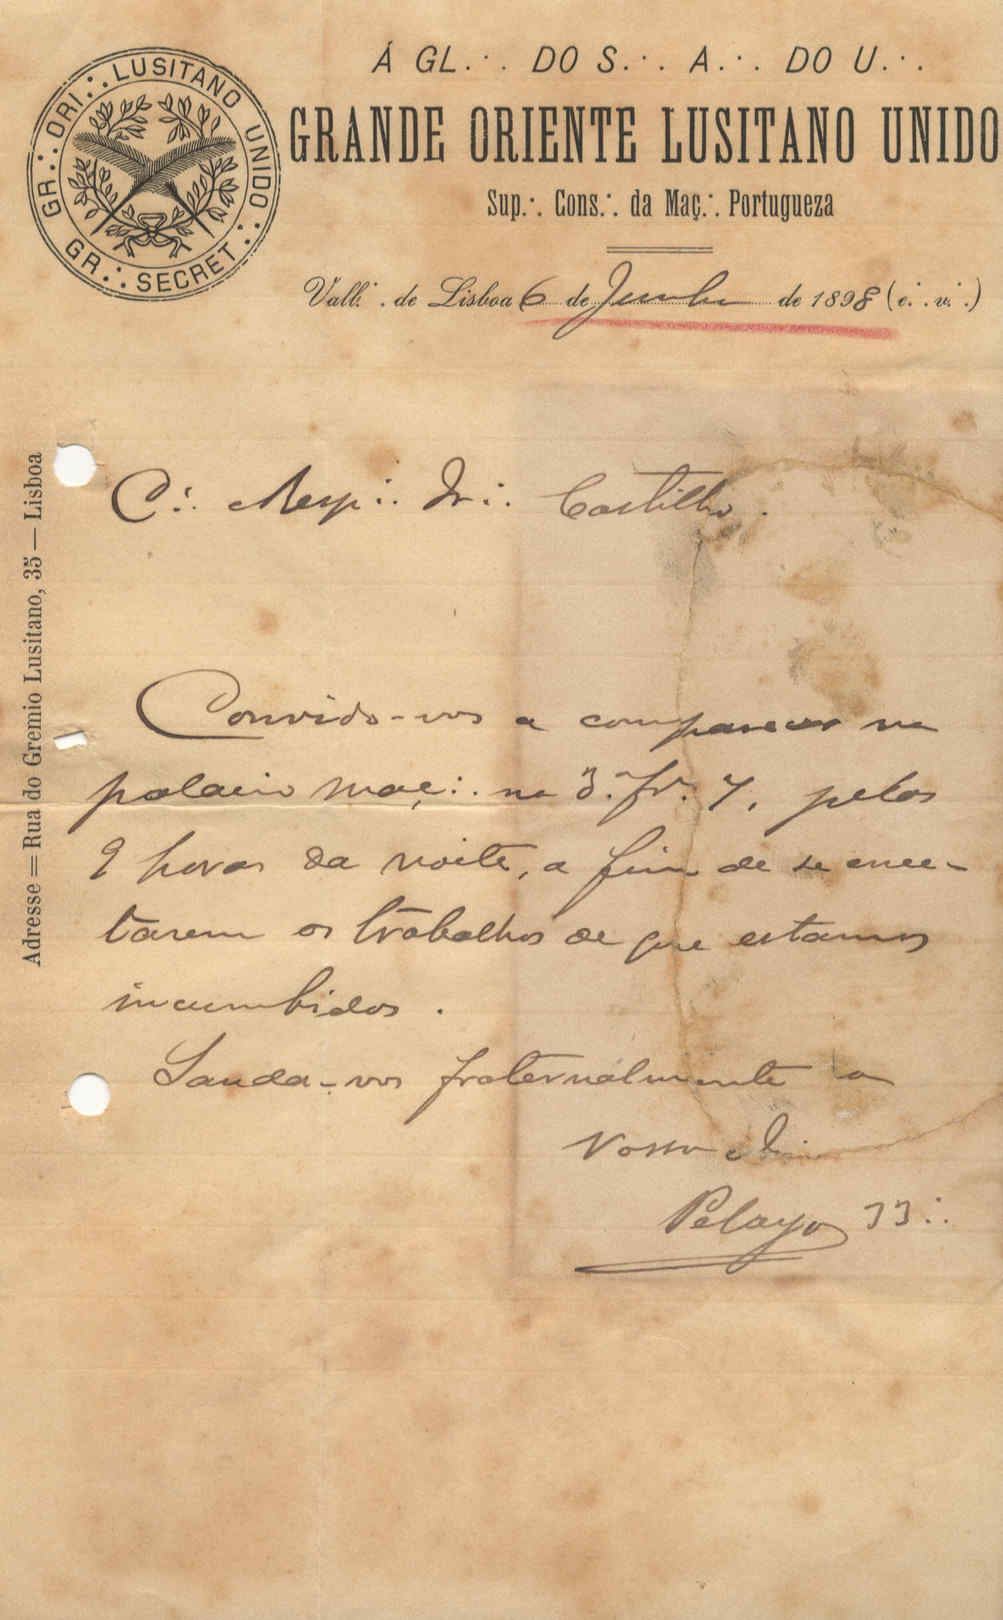 Á GL.∴ DO S.∴ A.∴ DO U.∴
GR.∴ ORI.∴ LUSITANO UNIDO.∴
GR.∴ SECRET.∴
GRANDE ORIENTE LUSITANO UNIDO
Sup.∴ Cons.∴ da Maç.∴ Portugueza
Vall.∴ de Lisboa 6 de Junho de 1898 (e.∴ v.∴)
Adresse = Rua do Gremio Lusitano, 35 — Lisboa
C∴ Resp∴ Ir∴ Castilho.
Convido-vos a comparecer no
palacio maç∴ na 3.ª fr.ª 7, pelas
9 horas da noite, a fim de se ence-
tarem os trabalhos de que estamos
incumbidos.
Sauda-vos fraternalmente o
Vosso Ir∴
Pelayo 33∴